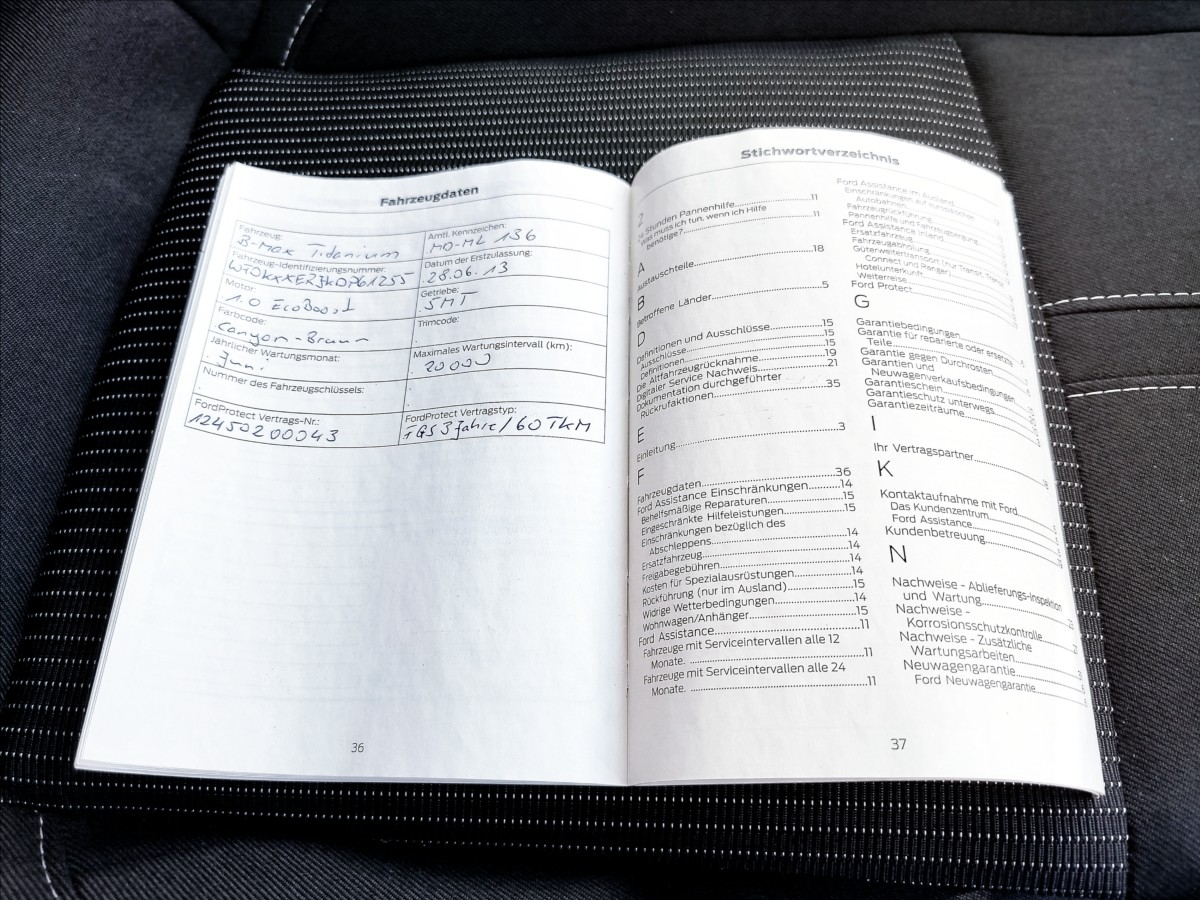 Fahrzeugdaten
Fahrzeug:
B-Max Titanium
Amtl. Kennzeichen:
MO-ML 136
Fahrzeug-Identifizierungsnummer:
Datum der Erstzulassung:
28.06.13
Motor:
1.0 EcoBoost
Getriebe:
5MT
Farbcode:
Canyon-Braun
Trimcode:
Jährlicher Wartungsmonat:
Juni
Maximales Wartungsintervall (km):
20000
Nummer des Fahrzeugschlüssels:
FordProtect Vertrags-Nr.:
12450200043
FordProtect Vertragstyp:
3 Jahre/60 TKM
36
Stichwortverzeichnis
2
24 Stunden Pannenhilfe 11
Was muss ich tun, wenn ich Hilfe
benötige? 11
A
Austauschteile 18
B
Betroffene Länder 5
D
Definitionen und Ausschlüsse 15
Ausschlüsse 15
Definitionen 15
Die Altfahrzeugrücknahme 19
Digitaler Service Nachweis 21
Dokumentation durchgeführter
Rückrufaktionen 35
E
Einleitung 3
F
Fahrzeugdaten 36
Ford Assistance Einschränkungen 14
Behelfsmäßige Reparaturen 15
Eingeschränkte Hilfeleistungen 15
Einschränkungen bezüglich des
Abschleppens 14
Ersatzfahrzeug 14
Freigabegebühren 14
Kosten für Spezialausrüstungen 14
Rückführung (nur im Ausland) 15
Widrige Wetterbedingungen 14
Wohnwagen/Anhänger 15
Ford Assistance 11
Fahrzeuge mit Serviceintervallen alle 12
Monate. 11
Fahrzeuge mit Serviceintervallen alle 24
Monate. 11
Ford Assistance im Ausland
Einschränkungen auf europäischen
Autobahnen
Fahrzeugrückführung
Pannenhilfe und Fahrzeugbergung
Ford Assistance Inland
Ersatzfahrzeug
Fahrzeugabholung
Güterweitertransport (nur Transit, Transit
Connect und Ranger)
Hotelunterkunft
Weiterreise
Ford Protect
G
Garantiebedingungen
Garantie für reparierte oder ersetzte
Teile
Garantie gegen Durchrosten
Garantien und
Neuwagenverkaufsbedingungen
Garantieschein
Garantieschutz unterwegs
Garantiezeiträume
I
Ihr Vertragspartner
K
Kontaktaufnahme mit Ford
Das Kundenzentrum
Ford Assistance
Kundenbetreuung
N
Nachweise - Ablieferungs-inspektion
und Wartung
Nachweise -
Korrosionsschutzkontrolle
Nachweise - Zusätzliche
Wartungsarbeiten
Neuwagengarantie
Ford Neuwagengarantie
37